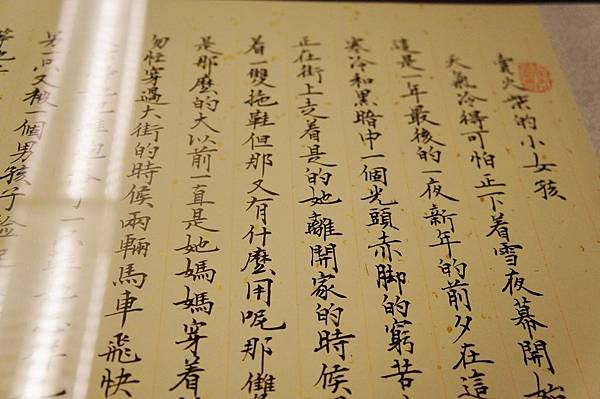 賣火柴的小女孩
天氣冷得可怕正下着雪夜幕開始
這是一年最後的一夜新年的前夕在這
寒冷和黑暗中一個光頭赤脚的窮苦
正在街上走着是的她離開家的時候
着一雙拖鞋但那又有什麼用呢那雙
是那麼的大以前一直是她媽媽穿着
匆忙穿過大街的時候兩輛馬車飛快
另一只又被一個男孩子撿